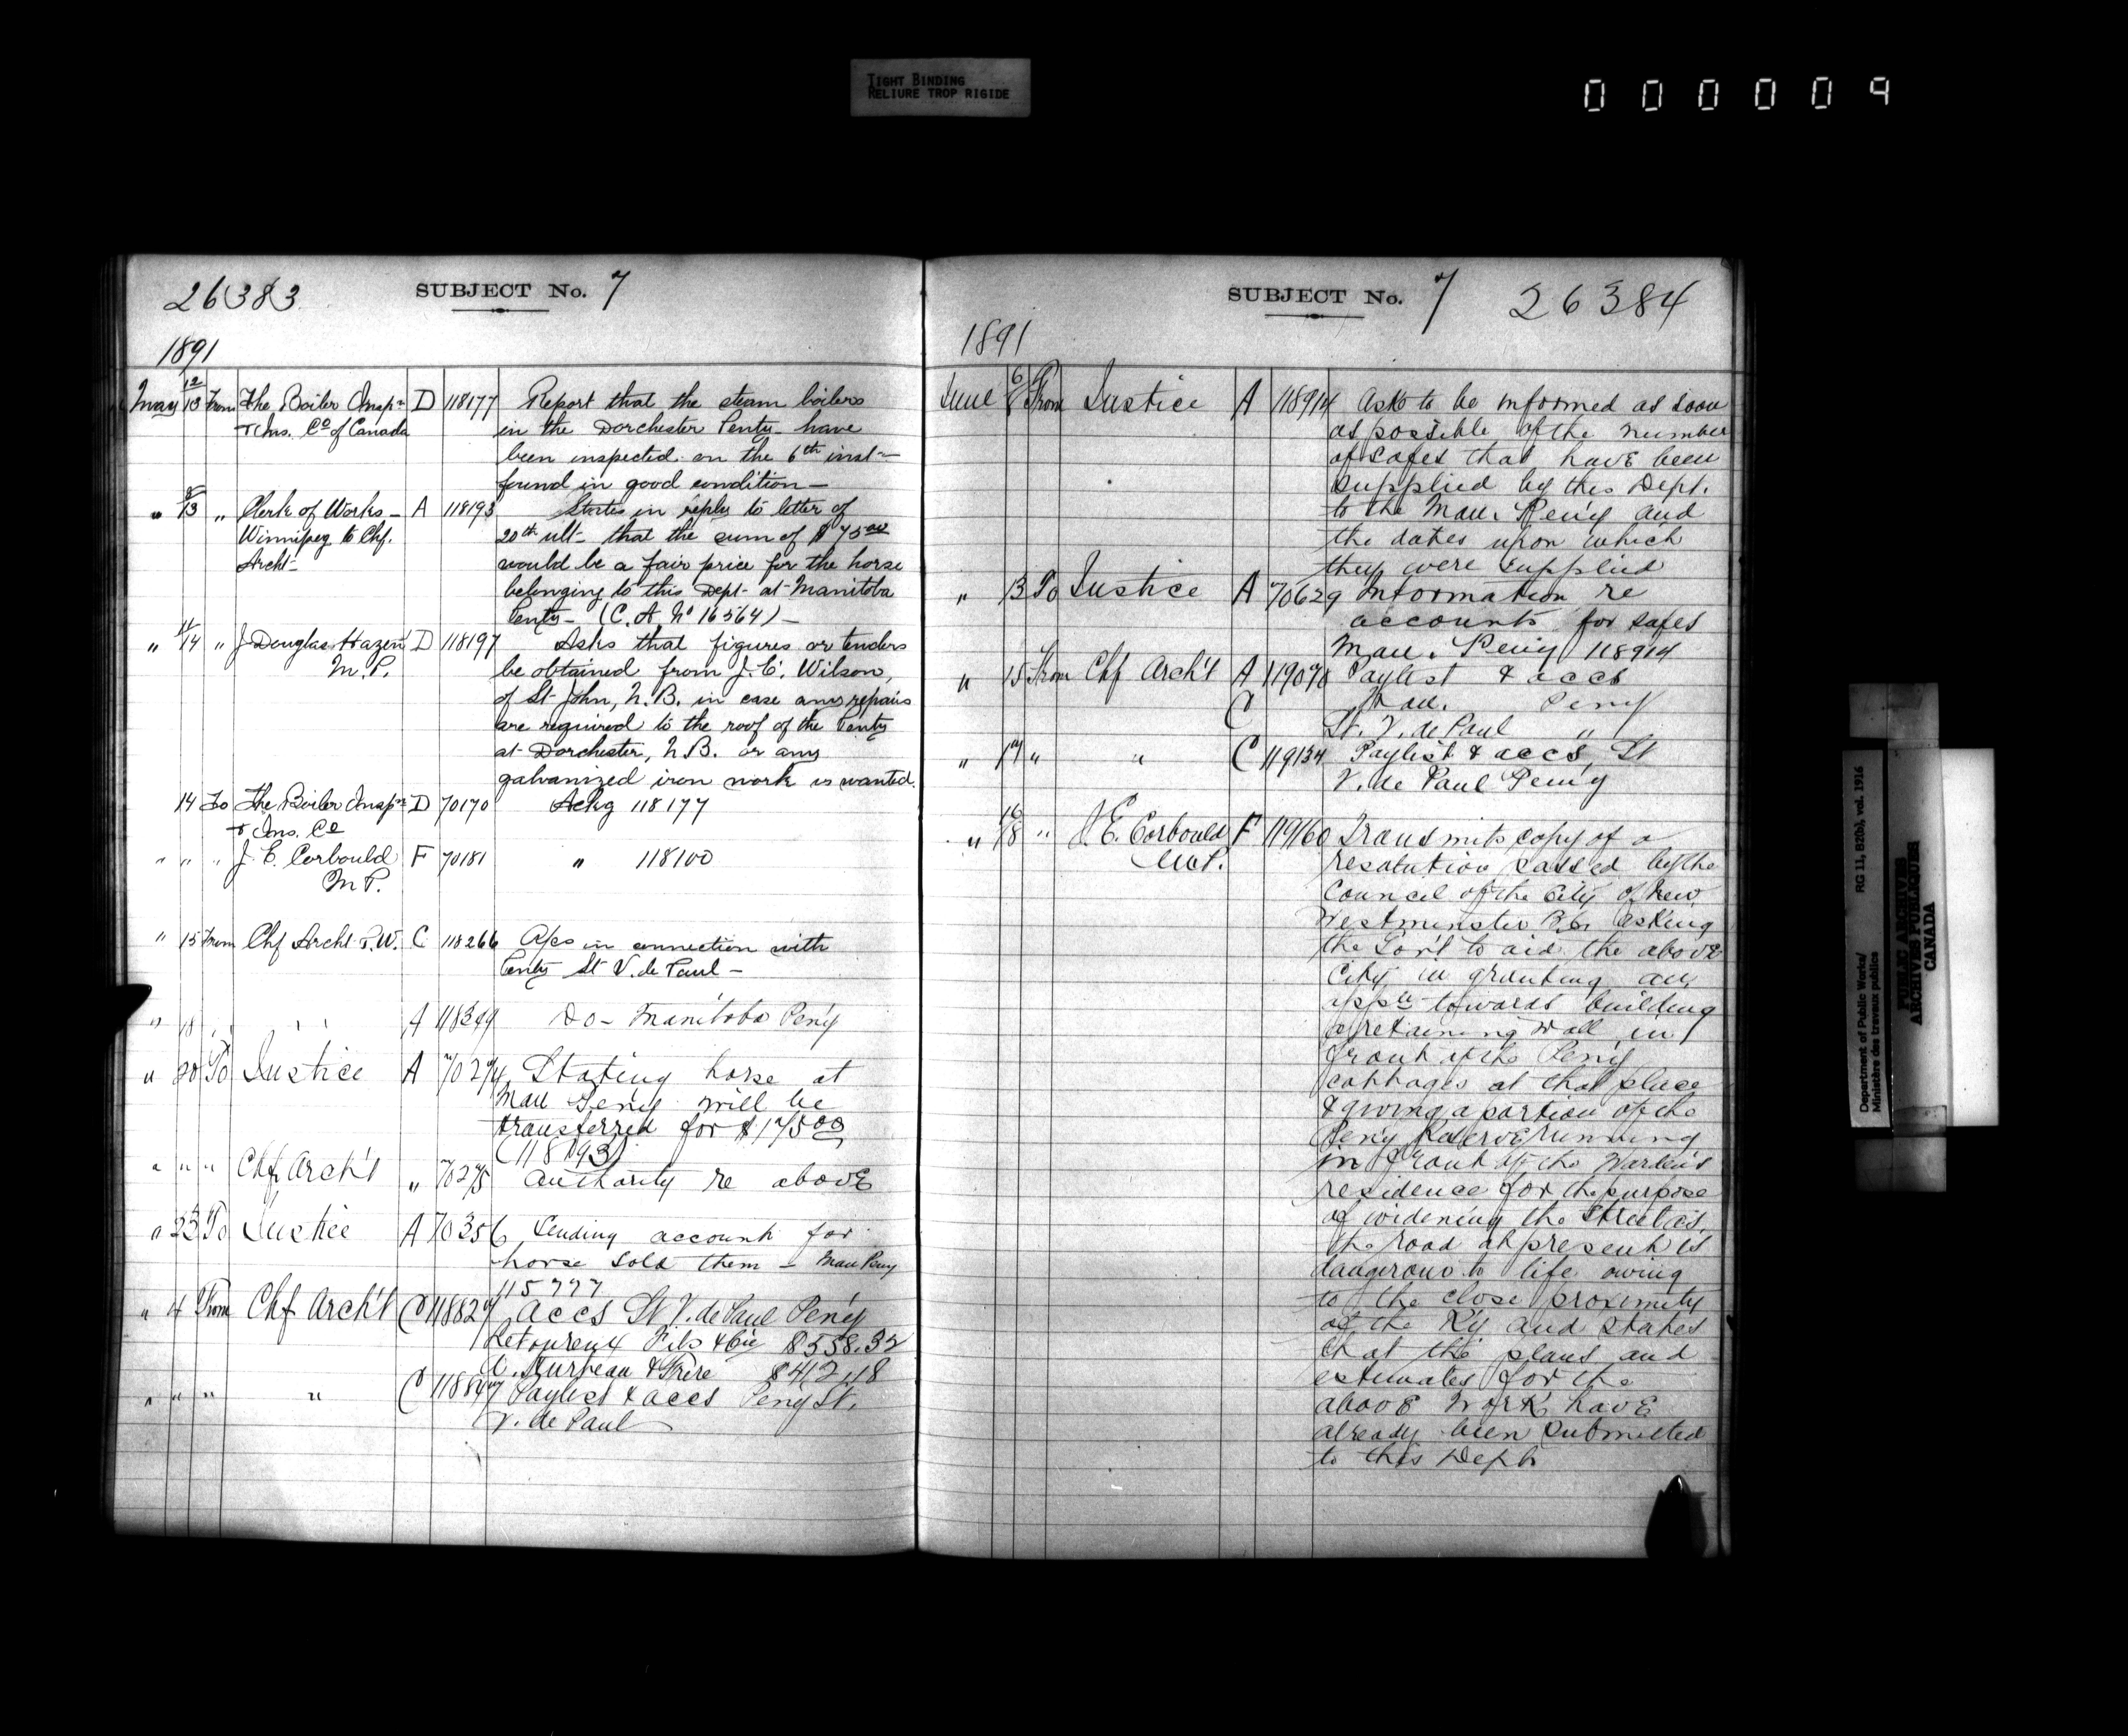 TIGHT BINDING
RELIURE TROP RIGIDE
000009
26383 SUBJECT No. 7
1891
May 12/13 From The Boiler Insp.n D 118177 Report that the steam boilers
& Ins. Co of Canada in the Dorchester Penty- have
been inspected on the 6th inst-
found in good condition-
" 8/13 " Clerk of Works- A 118193 States in reply to letter of
Winnipeg to Chf. 20th ult- that the sum of $ 75.00
Archt- would be a fair price for the horse
belonging to this Dept- at Manitoba
Penty- (C. A. No 16564)-
" 11/14 " J Douglas Hazen D 118197 Asks that figures or tenders
M.P. be obtained from J. E. Wilson,
of St John, N.B. in case any repairs
are required to the roof of the Penty
at Dorchester, N.B. or any
galvanized iron work is wanted.
14 To The Boiler Insp.n D 70170 Ackg 118177
& Ins. Co
" " " J. E. Corbould F 70181 " 118100
M P.
" 15 From Chf Archt P.W. C 118266 A/cs in connection with
Penty St V. de Paul-
" 18 A 118349 Do- Manitoba Peny
" 20 To Justice A 70274 Stating horse at
Man Peny will be
transferred for $175.00
(118193)
" " " Chf Arch't " 70275 Authority re above
" 23 To Justice A 70356 Sending account for
horse sold them - Man Peny
115777
" 4 From Chf Arch't C 118827 accs St V. de Paul Peny
Fils & Cie $558.32
& Frère $412.18
" " " " C 118847 Paylist & accs Peny St.
V. de Paul
SUBJECT No. 7 26384
1891
June 6/8 From Justice A 118914 Ask to be informed as soon
as possible of the number
of safes that have been
supplied by this Dept.
to the Man. Peny and
the dates upon which
they were supplied
" 13 To Justice A 70629 Information re
accounts for safes
Man. Peny 118914
" 15 From Chf Arch't A 119078 Paylist & accs
C Man. Peny
St. V. de Paul "
" 17 " " C 119134 Paylist & accs, St
V. de Paul Peny
" 16/18 " J. E. Corbould F 119160 Transmits copy of a
M.P. resolution passed by the
Council of the City of New
Westminster B.C. asking
the Gov't to aid the above
City in granting an
appn towards building
a retaining wall in
front of the Peny
cottages at that place
& giving a portion of the
Peny Reserve running
in front of the Warden's
residence for the purpose
of widening the street as
the road at present is
dangerous to life owing
to the close proximity
of the Ry and states
that the plans and
estimates for the
above work have
already been submitted
to this Dept.
Department of Public Works/
Ministère des travaux publics
RG 11, B2(b), vol. 1916
PUBLIC ARCHIVES
ARCHIVES PUBLIQUES
CANADA